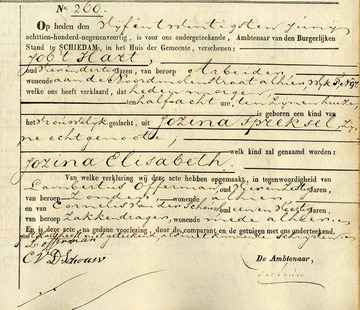 No. 260.
Op heden den Vijfentwintigsten Junij
achttien-honderd-negenenveertig, is voor ons ondergeteekende, Ambtenaar van den Burgerlijken
Stand te SCHIEDAM, in het Huis der Gemeente, verschenen:
Job't Hart,
oud Jaren, van beroep Arbeider
wonende aan de Noordmolenstraat alhier, Wijk
welke ons heeft verklaard, dat heden morgen
ten half acht ure, ten zijnen huize
is geboren een kind van
het Vrouwelijk geslacht, uit Jozina Spreksel, zij-
ne echtgenoote,
welk kind zal genaamd worden:
Jozina Elisabeth.
Van welke verklaring wij deze acte hebben opgemaakt, in tegenwoordigheid van
Lambertus Offerman, oud Jaren,
van beroep wonende alhier
en van Cornelis van der Schouw oud Jaren,
van beroep Zakkendrager, wonende mede alhier
En is deze acte na gedane voorlezing, door de comparant en de getuigen met ons onderteekend.
L. offerman
C V D Schouw
De Ambtenaar,